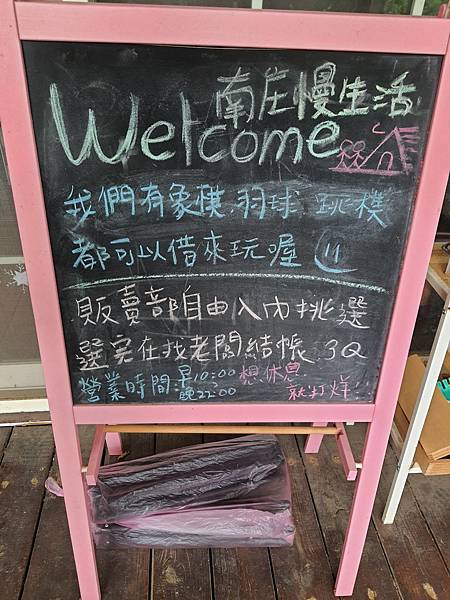 南庄慢生活
Welcome
我們有象棋.羽球.跳棋
都可以借來玩喔
販賣部自由入內挑選
選完在找老闆結帳 3Q
營業時間:早10:00
晚22:00
想休息
就打烊!!